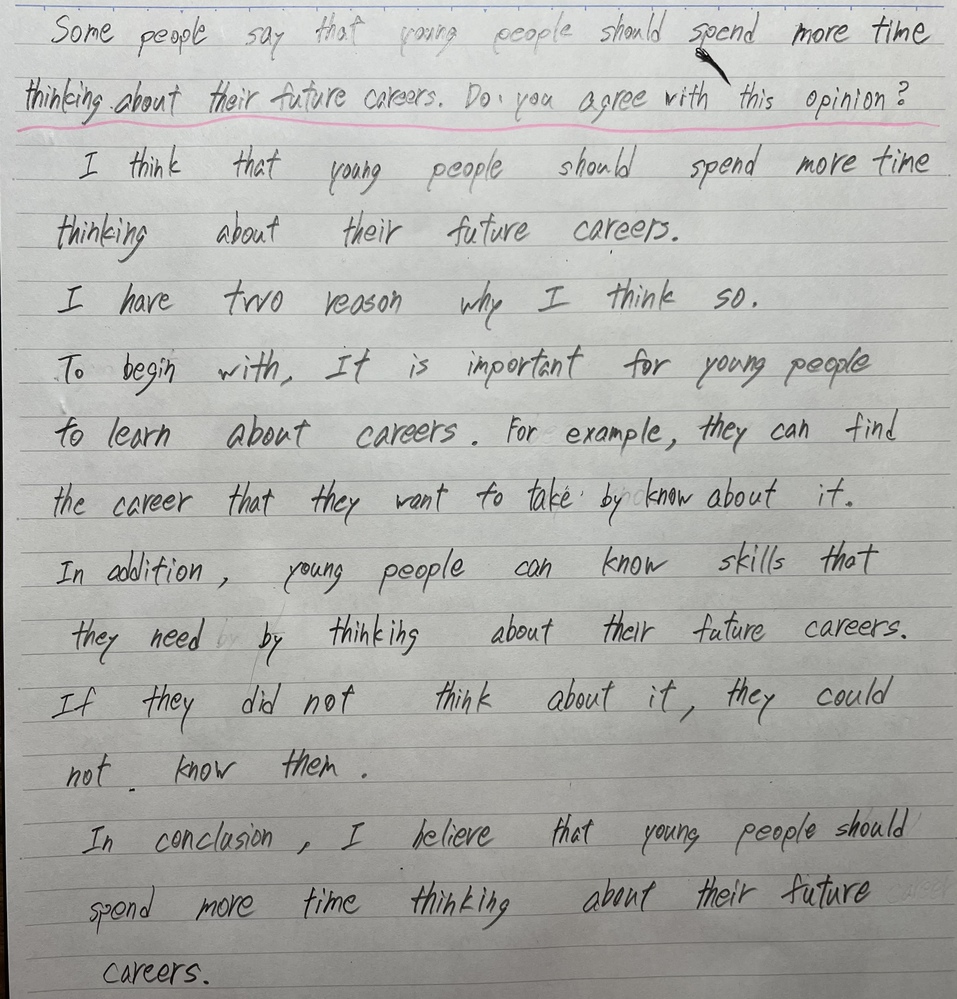 Some people say that young people should spend more time
thinking about their future careers. Do you agree with this opinion?
I think that young people should spend more time
thinking about their future careers.
I have two reason why I think so.
To begin with, It is important for young people
to learn about careers. For example, they can find
the career that they want to take by know about it.
In addition, young people can know skills that
they need by thinking about their future careers.
If they did not think about it, they could
not know them.
In conclusion, I believe that young people should
spend more time thinking about their future
careers.